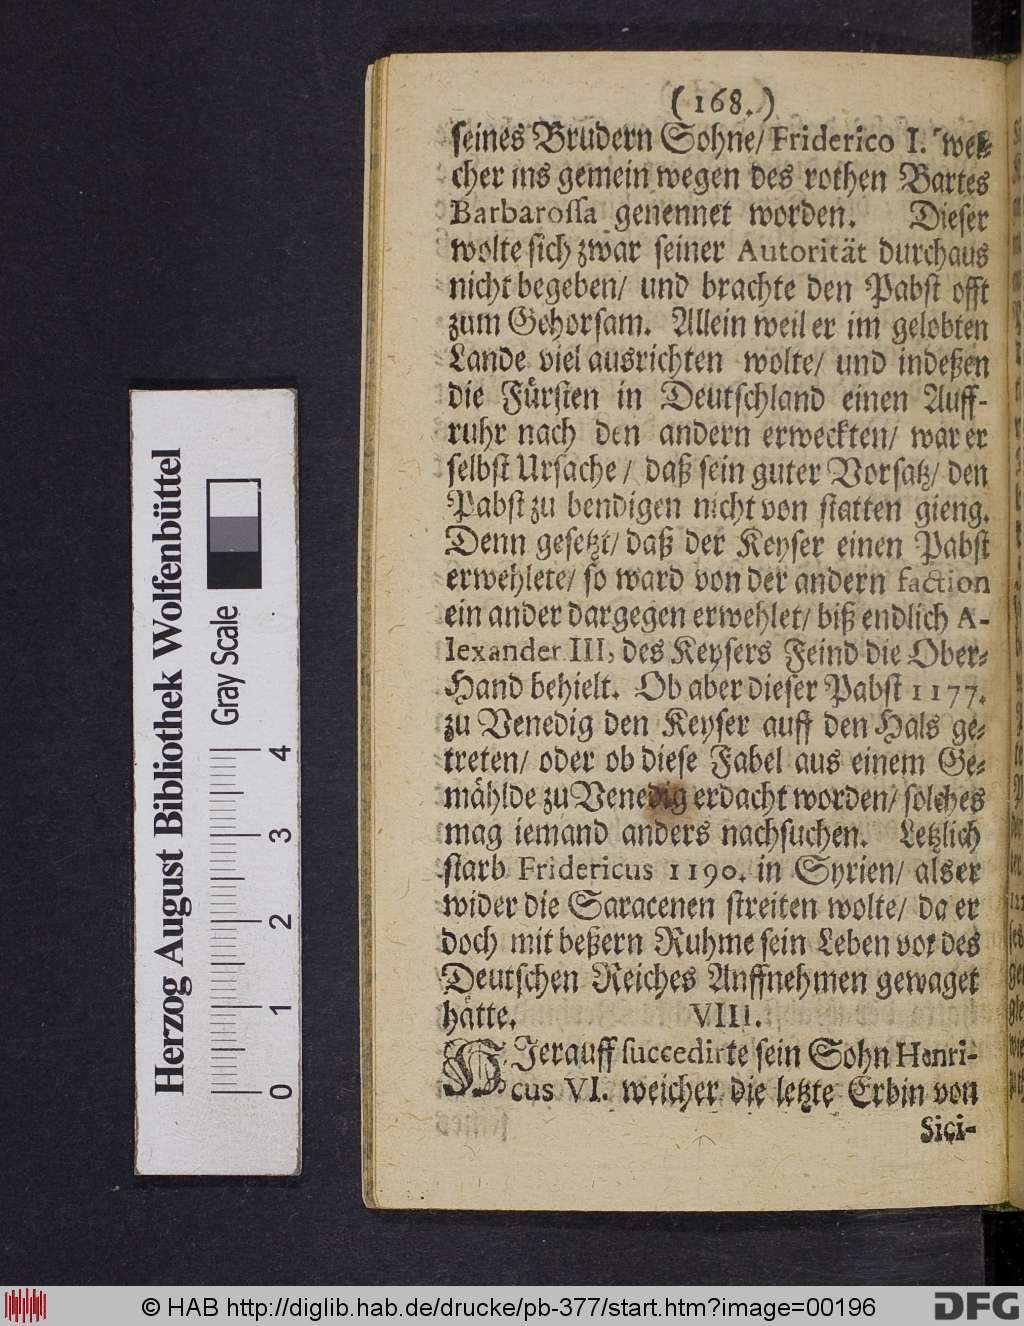 (168.)
seines Brudern Sohne/ Friderico I. wel-
cher ins gemein wegen des rothen Bartes
Barbarossa genennet worden. Dieser
wolte sich zwar seiner Autorität durchaus
nicht begeben/ und brachte den Pabst offt
zum Gehorsam. Allein weil er im gelobten
Lande viel ausrichten wolte/ und indeßen
die Fürsten in Deutschland einen Auff-
ruhr nach den andern erweckten/ war er
selbst Ursache/ daß sein guter Vorsatz/ den
Pabst zu bendigen nicht von statten gieng.
Denn gesetzt/ daß der Keyser einen Pabst
erwehlete/ so ward von der andern faction
ein ander dargegen erwehlet/ biß endlich A-
lexander III, des Keysers Feind die Ober-
Hand behielt. Ob aber dieser Pabst 1177.
zu Venedig den Keyser auff den Hals ge-
treten/ oder ob diese Fabel aus einem Ge-
mählde zu Venedig erdacht worden/ solches
mag iemand anders nachsuchen. Letzlich
starb Fridericus 1190. in Syrien/ als er
wider die Saracenen streiten wolte/ da er
doch mit beßern Ruhme sein Leben vor des
Deutschen Reiches Auffnehmen gewaget
hätte.
VIII.
HJerauff succedirte sein Sohn Henri-
cus VI. welcher die letzte Erbin von
Sici-
Herzog August Bibliothek Wolfenbüttel
Gray Scale
0 1 2 3 4
© HAB http://diglib.hab.de/drucke/pb-377/start.htm?image=00196
DFG